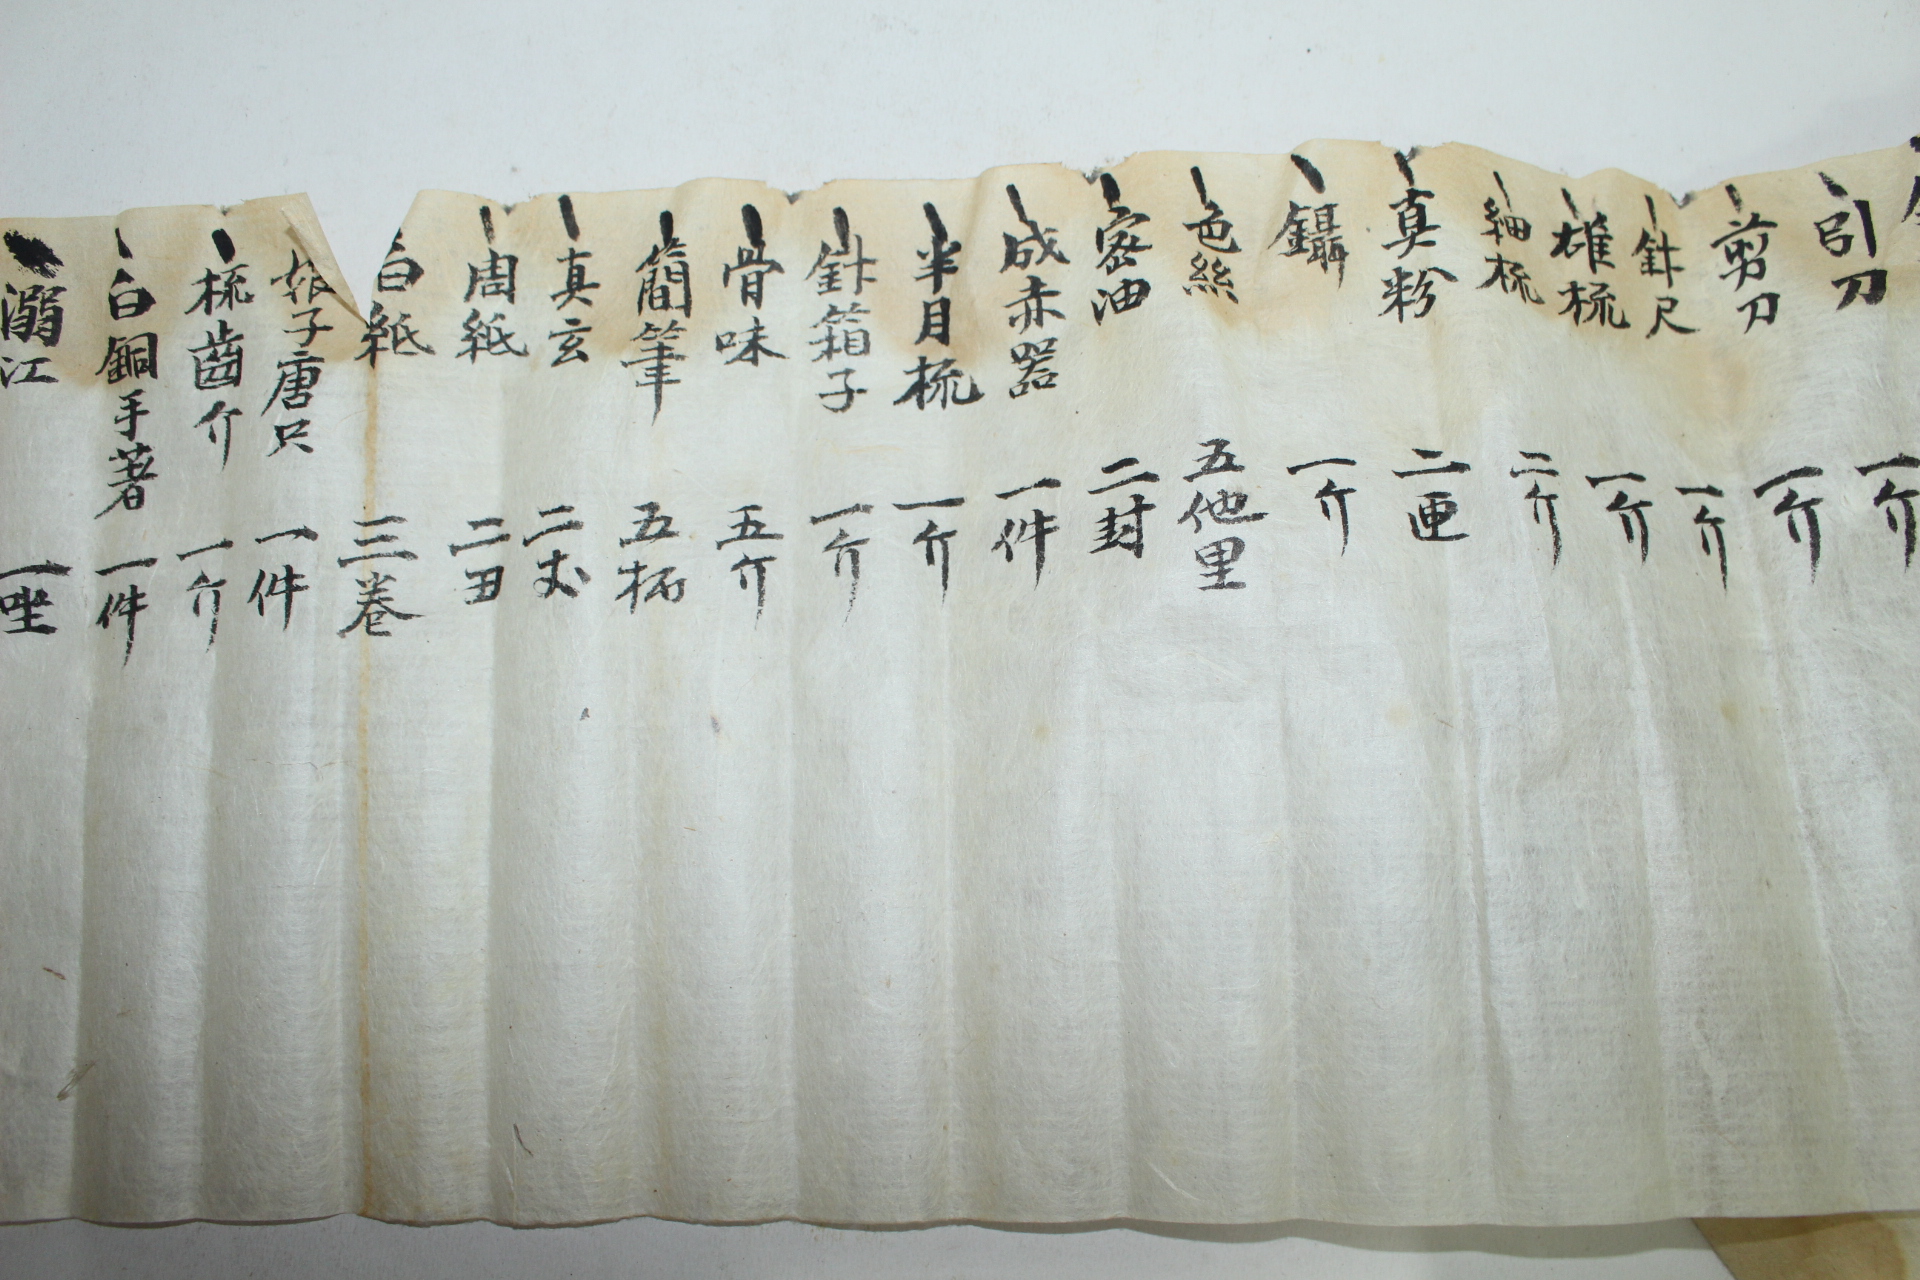 引刀 一介
剪刀 一介
針尺 一介
雄梳 一介
細梳 二介
真粉 二匣
鑷 一介
色絲 五他里
密油 二封
成赤器 一件
半月梳 一介
針箱子 一介
骨味 五介
簡筆 五柄
真玄 二丈
周紙 二丑
白紙 三卷
娘子唐只 一件
梳齒介 一介
白銅手著 一件
溺江 一唑